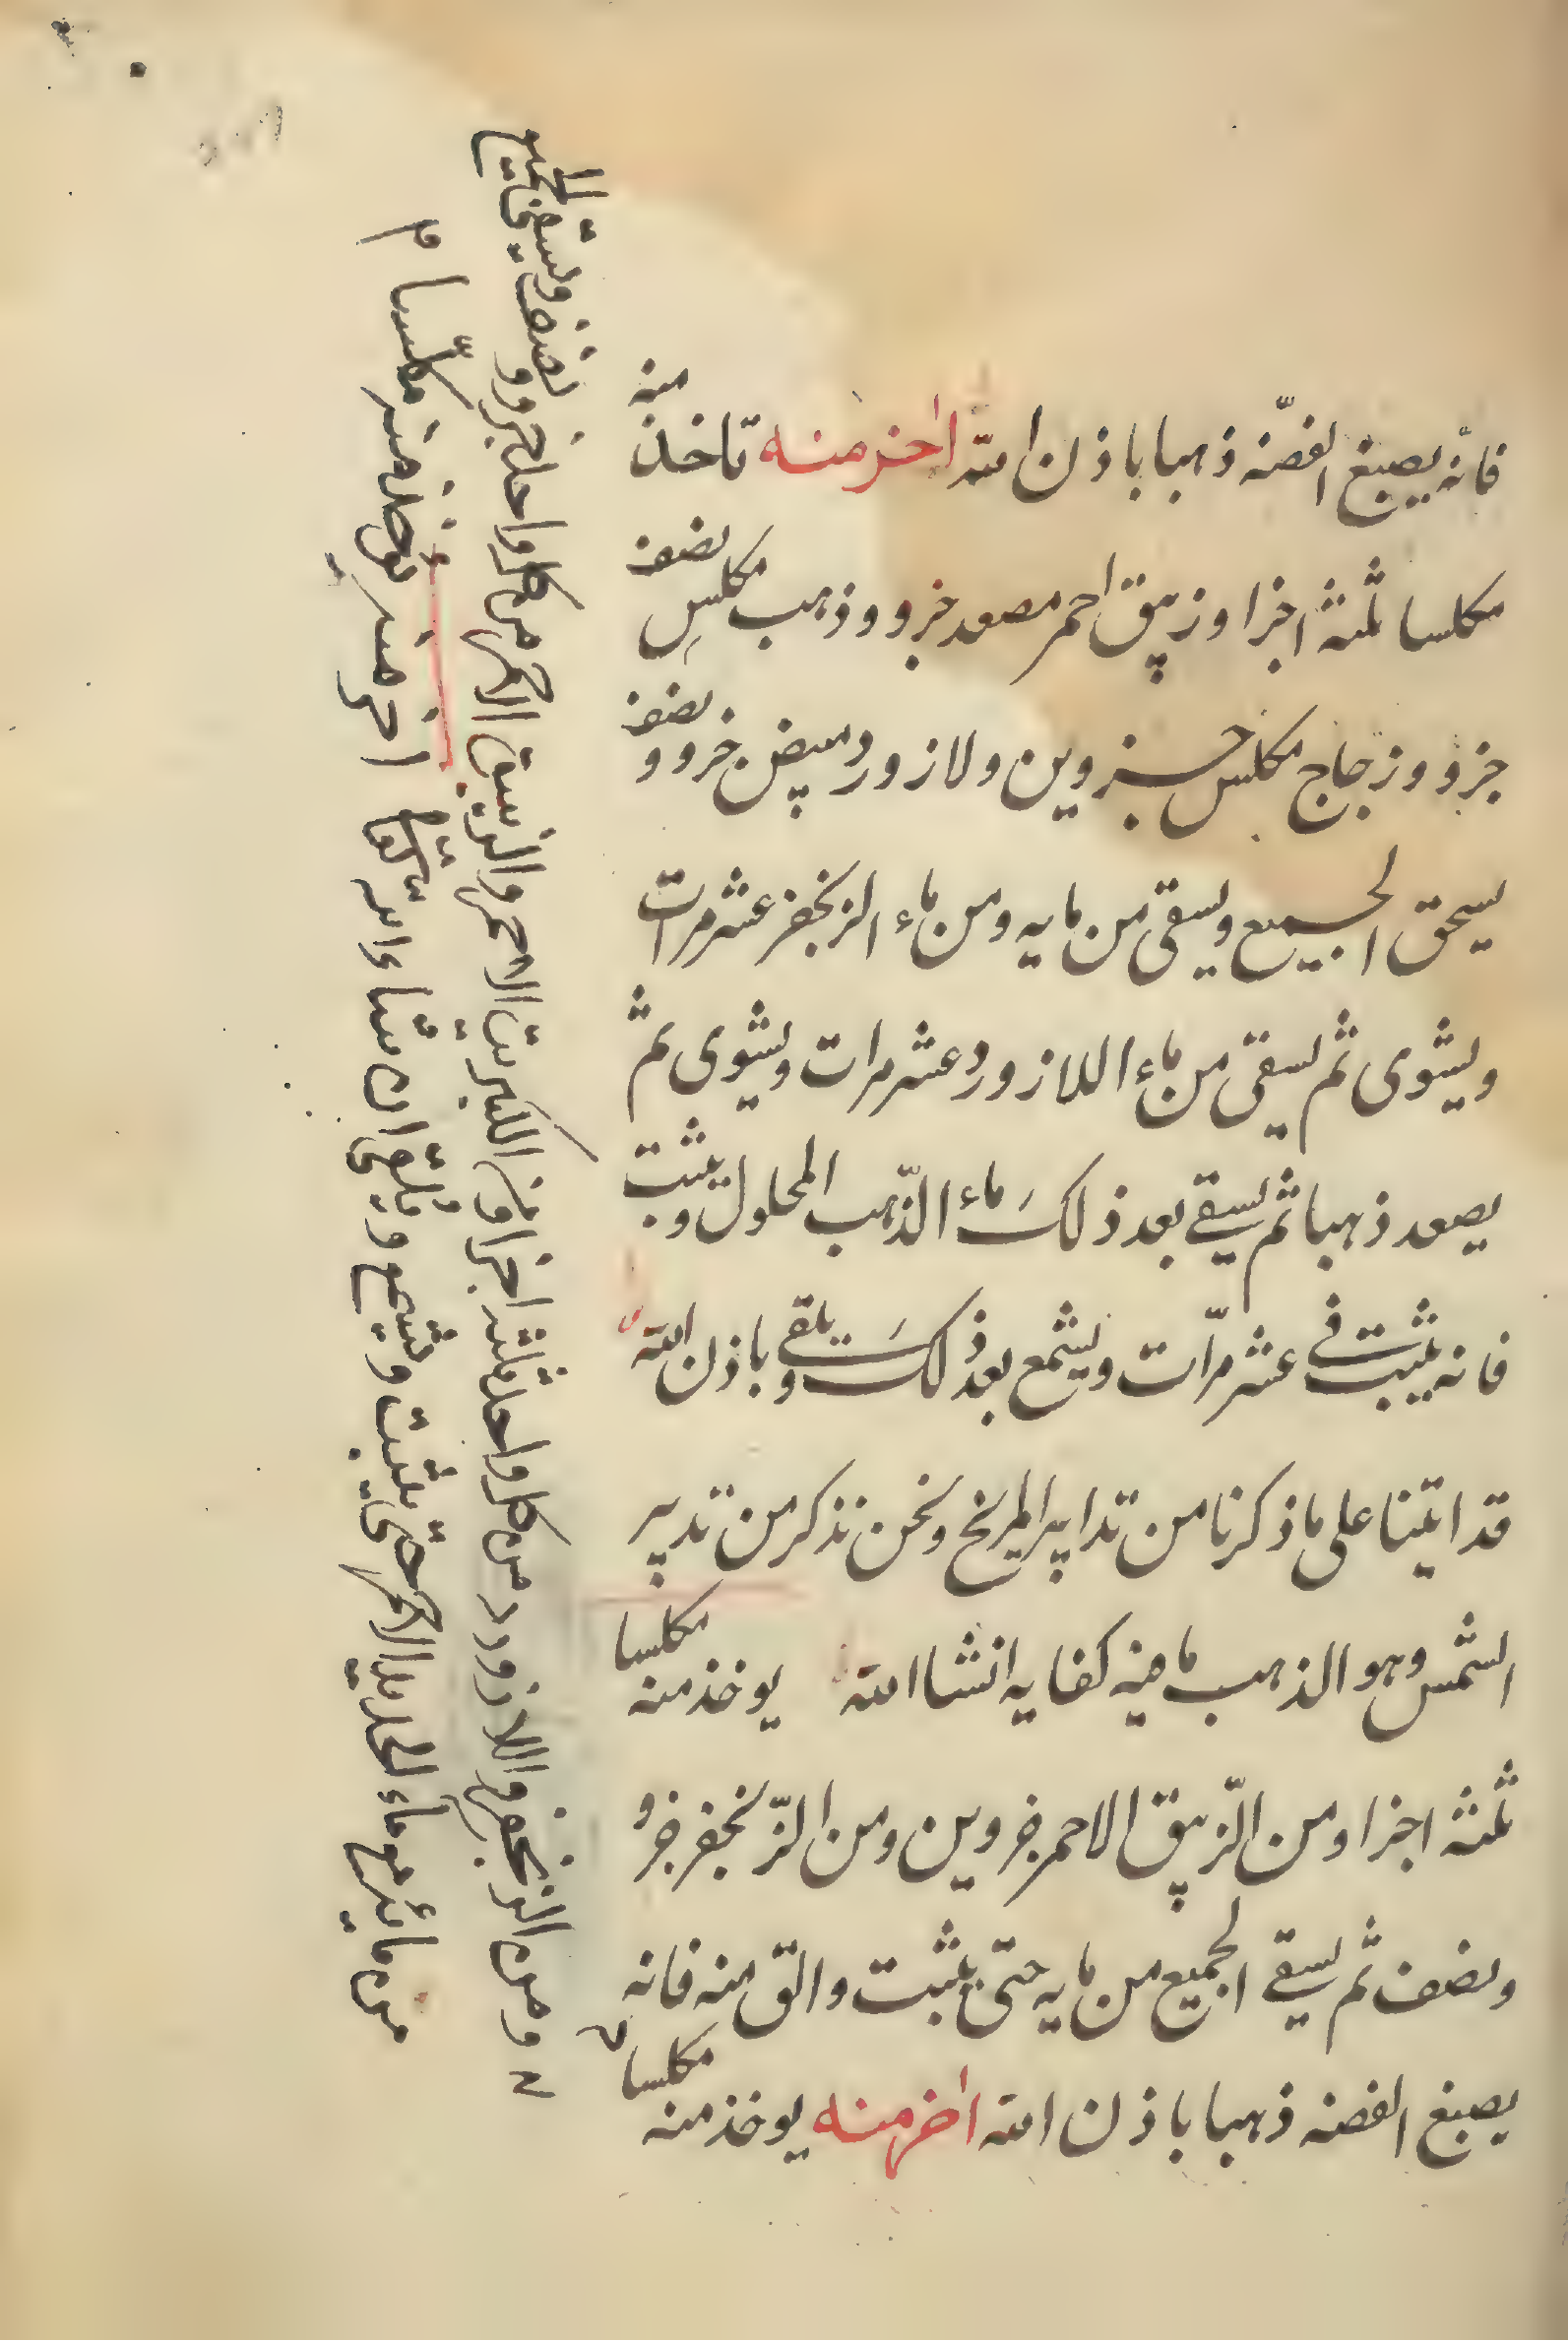 فانه يصبغ الفضّة ذهبا باذن الله اخر منه تاخذ منه
مكلسا ثلثة اجزا وزيبق احمر مصعد جزو وذهب مكلسِ نصف
جزو وزجاج مكلس جزوين ولازورد مبيض جزو ونصف
يسحق الجميع ويسقى من مايه ومن ماء الزنجفر عشر مرات
ويشوى ثم يسقى من ماء اللازورد عشر مرات ويشوى ثم
يصعد ذهبا ثم يسقى بعد ذلكَ ماء الذّهب المحلول ويثبت
فانه يثبت فى عشر مرّات ويشمع بعد ذلكَ ويلقى باذن الله
قد اتينا على ما ذكرنا من تدابير المريخ ونحن نذكر من تدبير
الشمس وهو الذهب ما فيه كفايه انشا الله يوخذ منه مكلسا
ثلثة اجزا ومن الزّيبق الاحمر جزوين ومن الزّنجفر جزو
ونصف ثم يسقى الجميع من مايه حتّى يثبت والق منه فانه
يصبغ الفضه ذهبا باذن الله اخر منه يوخذ منه مكلسا
ومن الزنجفر واللازورد من كل واحد ثلثة اجزا ومن الكبريت الاحمر والزيبق الاحمر من كل واحد جزو ونصف وتسقى الجميع
من مائه ومن ماء الحديد الاحمر حتّى يثبت ويشمع ويلقى ان شاء الله تعالى اخر منه يوخذ منه مكلّسا